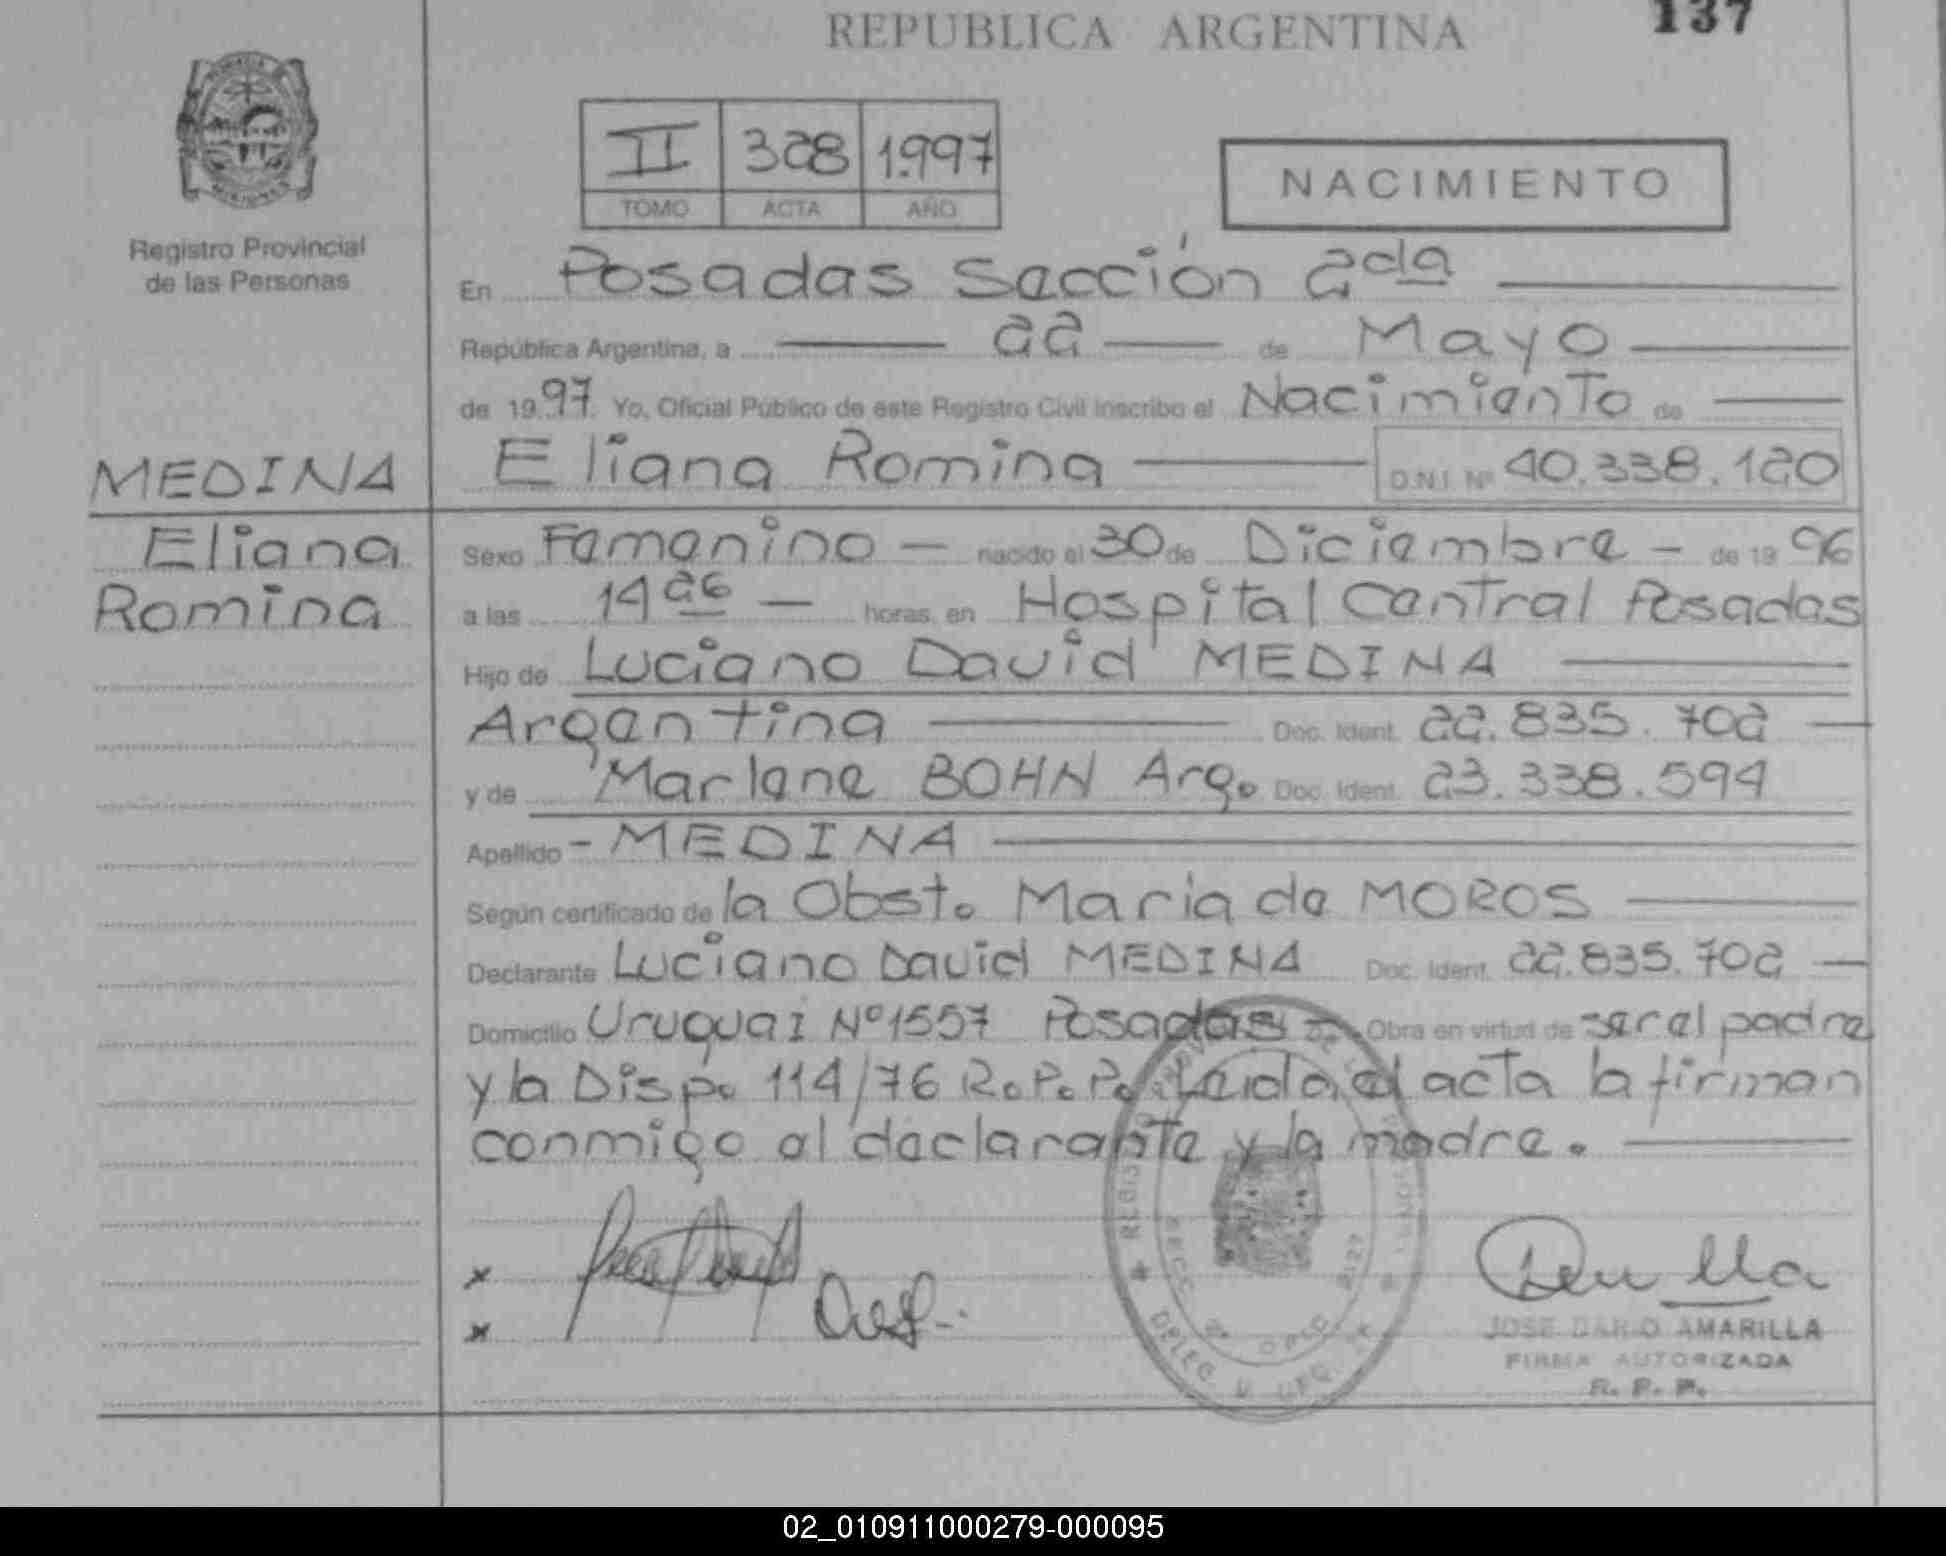 REPUBLICA ARGENTINA 137
II 328 1.997
TOMO ACTA AÑO
NACIMIENTO
Registro Provincial
de las Personas
En Posadas Sección 2da
República Argentina, a 22 de Mayo
de 1997 Yo, Oficial Público de este Registro Civil inscribo el Nacimiento de
MEDINA Eliana Romina D.N.I. Nº 40.338.120
Eliana Sexo Femenino nacido el 30 de Diciembre de 1996
Romina a las 14 26 horas, en Hospital Central Posadas
Hijo de Luciano David MEDINA
Argentina Doc. Ident. 22.835.702
y de Marlene BOHN Arg. Doc. Ident. 23.338.594
Apellido - MEDINA
Según certificado de la Obst. Maria de MOROS
Declarante Luciano David MEDINA Doc. Ident. 22.835.702
Domicilio Uruguai Nº 1557 Posadas Obra en virtud de ser el padre
y la Disp. 114/76 R.P.P. Leida el acta la firman
conmigo el declarante y la madre.
JOSE DARIO AMARILLA
FIRMA AUTORIZADA
R. P. P.
02_010911000279-000095